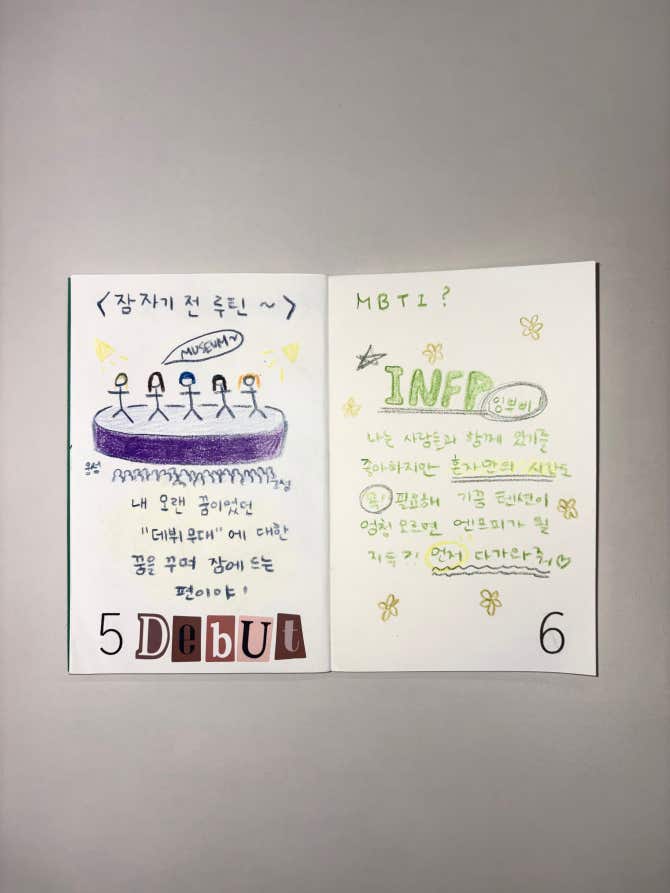 <잠자기 전 루틴 ~>
MUSEUM~
웅성
웅성
내 오랜 꿈이었던
"데뷔무대"에 대한
꿈을 꾸며 잠에 드는
편이야!
5 Debut
MBTI?
INFP
잉뿌삐
나는 사람들과 함께 있기를
좋아하지만 혼자만의 시간도
꼭! 필요해 가끔 텐션이
엄청 오르면 엔프피가 될
지도?! 먼저 다가와줘♡
6